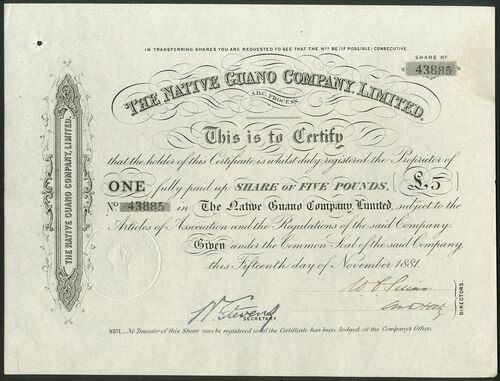 IN TRANSFERRING SHARES YOU ARE REQUESTED TO SEE THAT THE NOS BE (IF POSSIBLE) CONSECUTIVE.
SHARE NO
43885
THE NATIVE GUANO COMPANY, LIMITED.
A.B.C. PROCESS.
This is to Certify
that the holder of this Certificate is whilst duly registered the Proprietor of
ONE fully paid up SHARE OF FIVE POUNDS, £5
No 43885 in The Native Guano Company, Limited, subject to the
Articles of Association and the Regulations of the said Company.
Given under the Common Seal of the said Company,
this Fifteenth day of November 1881.
SECRETARY.
DIRECTORS.
NOTE.. No Transfer of this Share can be registered until the Certificate has been lodged at the Company's Office.
THE NATIVE GUANO COMPANY, LIMITED.